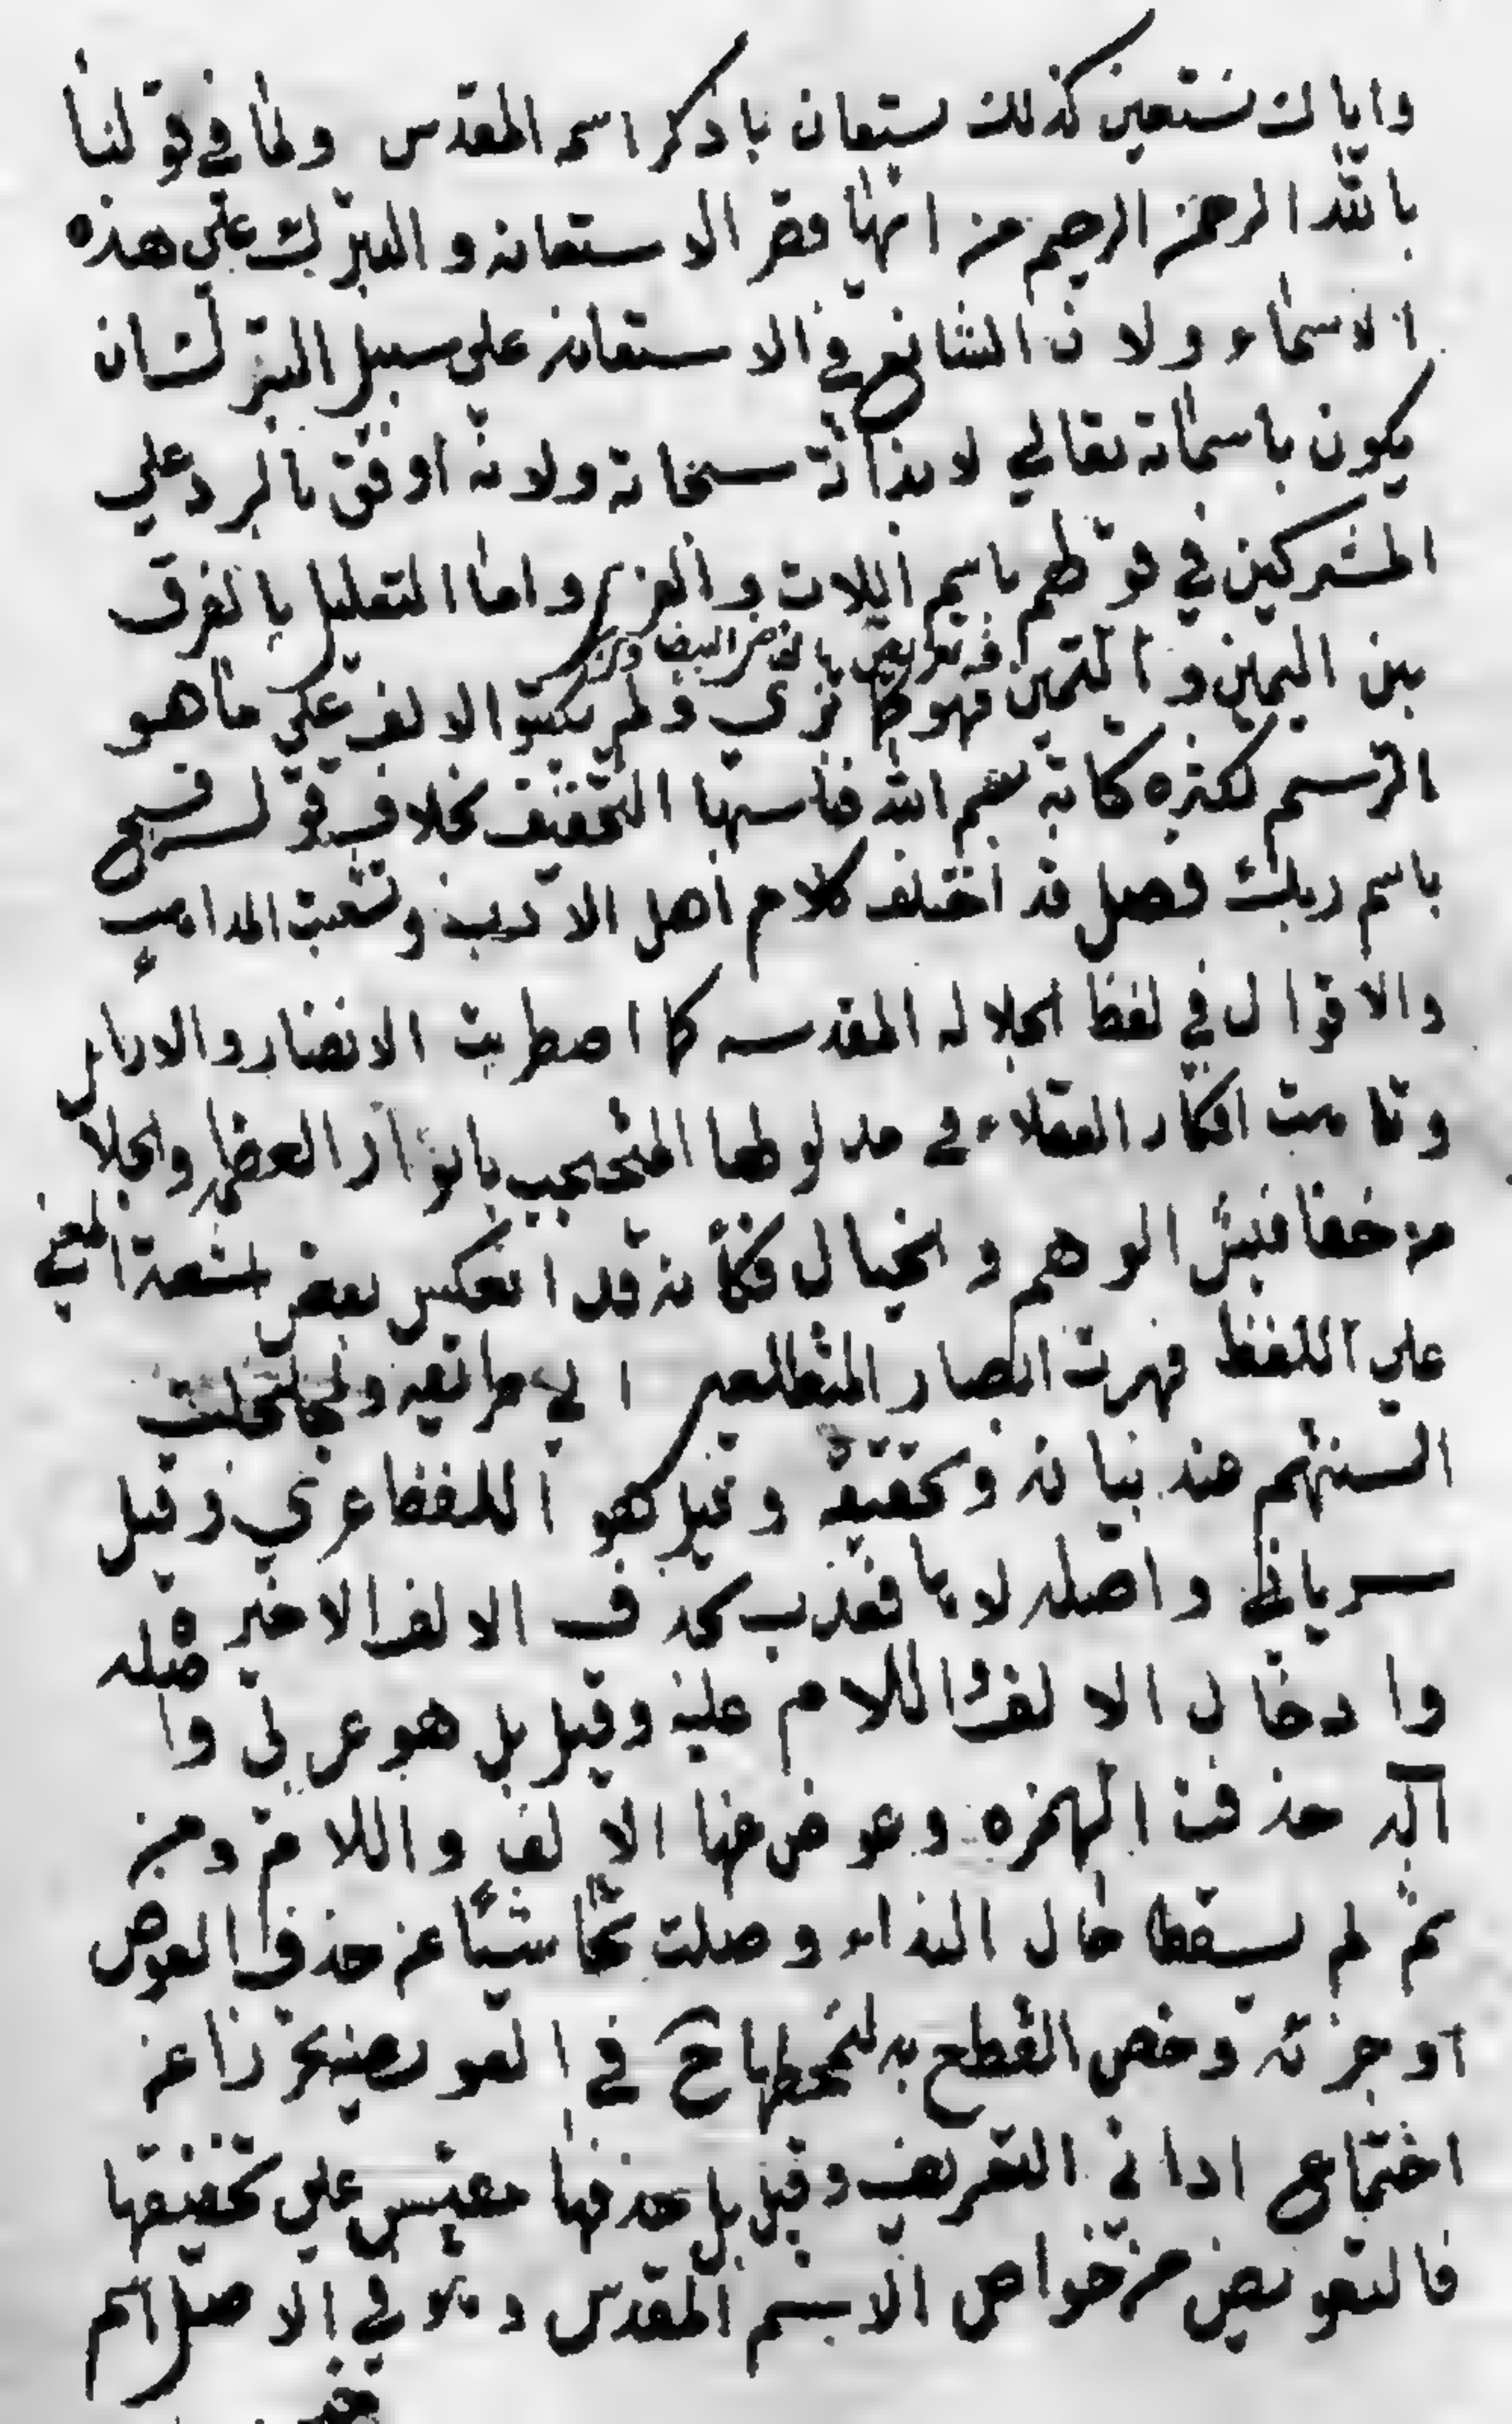 واياك نستعين كذلك يستعان باذكر اسمه المقدس ولما في قولنا
بالله الرحمن الرحيم من ايهام قصر الاستعانه والتبرك علي هذه
الاسماء ولان الشائع في الاستعانه علي سبيل التبرك ان
يكون باسمائه تعالي لا بذاته سبحانه ولانه اوفق بالرد علي
المشركين في قولهم باسم اللات والعزي واما التعليل بالفرق
فيه تعريض بالقاضي البيضاوي
بين اليمين والتيمن فهو كما تري ولم يكتبوا الالف علي ما هو
الرسم لكثره كتابة بسم الله فناسبها التخفيف بخلاف قولـ فسبح
باسم ربك فصل قد اختلف كلام اهل الادب وتشعبت المذاهب
والاقوال في لفظ الجلاله المقدسه كما اضطربت الانضار والاراء
وتاهت افكار العقلاء في مدلولها المتحجب بانوار العظمه والجلا
من خفافيش الوهم والخيال فكأنه قد انعكس بعض اشعة المعني
علي اللفظ فبهرت ابصار المتطالعين الي مراتعه وتلجلجت
السنتهم عند بيانه وتحقيقه وقيل هو اللفظ عربي وقيل
سرياني واصله لاها فعذب بحذف الالف الاخير
وادخال الالف اللام عليه وقيل بل هو عربي واصله
اله حذفت الهمزه وعوض عنها الالف واللام ومن
ثم لم يسقط حال النداء وصلت تحاشيًا عن حذف العوض
او جزئه وخص القطع به لتمحضها ح في التعويض تحرزا عن
اجتماع اداتي التعريف وقيل بل حذفها مقيس علي تخفيفها
فالتعويض من خواص الاسم المقدس وهو في الاصل اسم